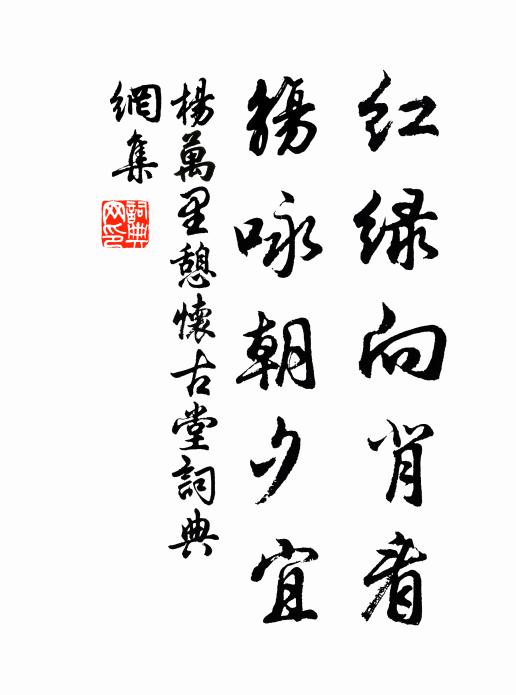 红绿向背者
觞咏朝夕宜
楊萬里憩懷古堂詞典
網集
詞典
网印